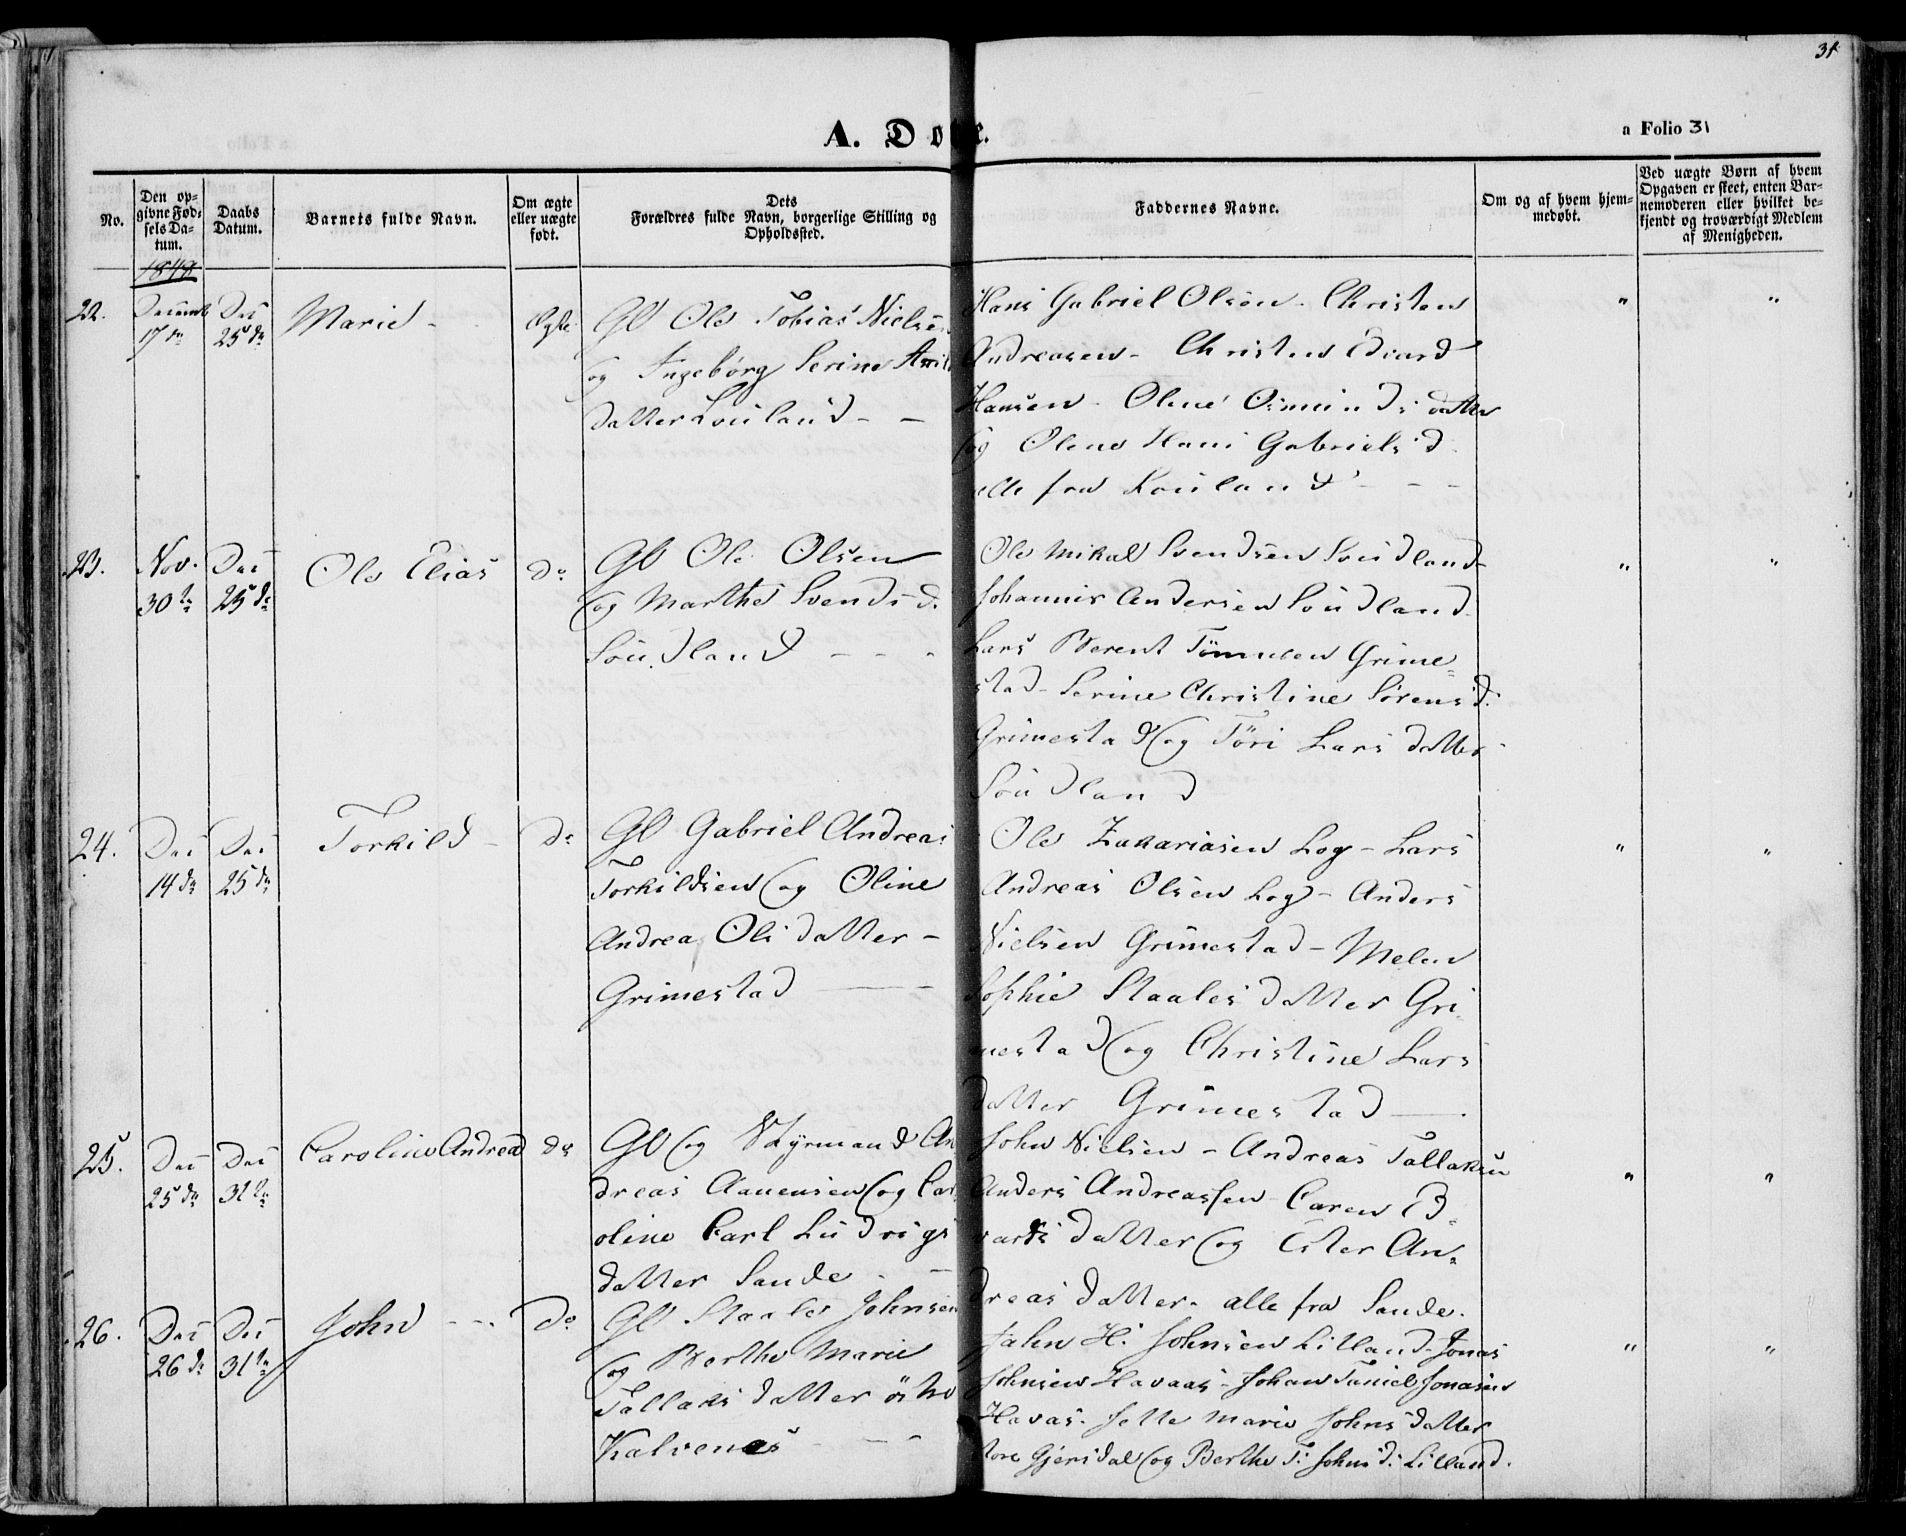 31
A. Døbte.
a Folio 31
No.
Den op-
givne Fød-
sels Da-
tum.
Daabs
Datum.
Barnets fulde Navn.
Om ægte
eller uægte
født.
Dets
Forældres fulde Navn, borgerlige Stilling og
Opholdssted.
Faddernes Navne.
Om og af hvem hjem-
medøbt.
Ved uægte Børn af hvem
Opgaven er skeet, enten Bar-
nemoderen eller hvilket be-
kjendt og troværdigt Medlem
af Menigheden.
1849
22.
Decemb
17de
Dec
25de
Marie -
Ægte
Gb Ole Tobias Nielsen
og Ingebørg Serine
datter Louland - -
Hans Gabriel Olsen - Christen
Andreasen - Christen Edvard
Hansen - Oline Osmundsdatter
og Olene Hans Gabrielsd.
alle fra Louland - - -
" "
23.
Nov.
30te
Dec
25de
Ole Elias
do
Gb Ole Olsen
og Marthe Svendsd.
Soudland - - -
Ole Mikal Svendsen Soudland -
Johannes Andersen Soudland.
Lars Berent Tönnesen Grime=
stad - Serine Christine Sörensd.
Grimestad og Töri Larsdatter
Soudland
" "
24.
Dec
14de
Dec
25de
Torkild -
do
Gb Gabriel Andreas
Torkildsen og Oline
Andrea Olsdatter -
Grimestad - -
Ole Zakariasen Log - Lars
Andreas Olsen Log - Anders
Nielsen Grimestad - Melen
Sophie Staalesdatter Gri
mestad og Christine Lars
datter Grimestad -
" "
25.
Dec
25de
Dec
31te
Caroline Andrea
do
Gb og Styrmand An
dreas Aanensen og Car
oline Carl Ludvigs
datter Sande - -
John Nielsen - Andreas Tallaksen
Anders Andreassen - Caren Ed=
vardsdatter og Ester An=
dreasdatter - alle fra Sande.
" "
26.
Dec
26de
Dec
31te
John - - -
do
Gb Staale Johnsen
og Berthe Marie
Tallaksdatter östre
Kalvenes - - -
John H. Johnsen Lilland - Jonas
Johnsen Havaas - Johan Taniel Jonasen
Havas - Jette Marie Johnsdatter
store Gjersdal og Berthe T. Johnsd. Lilland.
" "